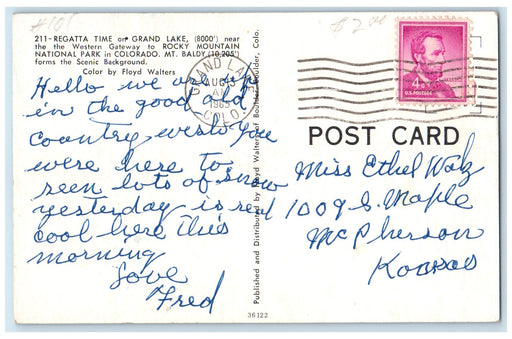 211-REGATTA TIME on GRAND LAKE, (8000') near
the the Western Gateway to ROCKY MOUNTAIN
NATIONAL PARK in COLORADO. MT. BALDY (10,205')
forms the Scenic Background.
Color by Floyd Walters
Hello we are up
in the good old
country wish you
were here to
seen lots of snow
yesterday - is real
cool here this
morning
Love
Fred
Published and Distributed by Floyd Walters of Boulder, Boulder, Colo.
36122
GRAND LAKE
AUG
AM
1965
COLO.
4¢
U.S. POSTAGE
POST CARD
Miss Ethel Walz
1009 S. Maple
McPherson
Kansas
$2.00